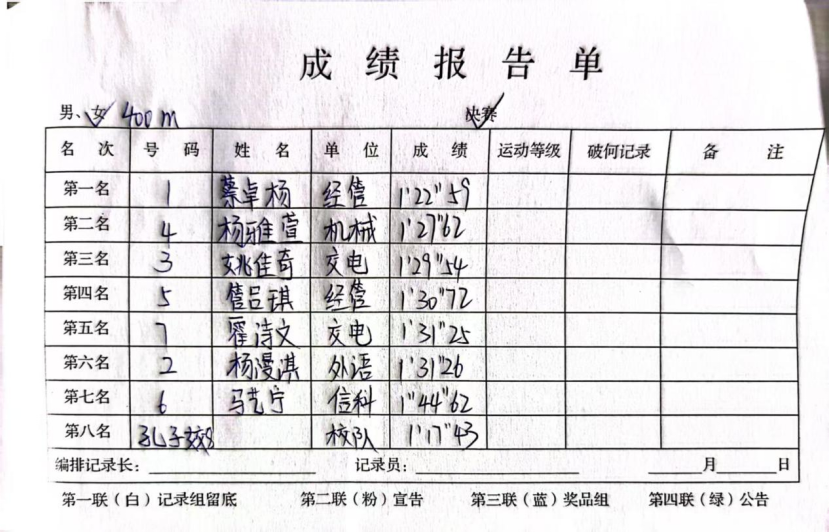 成绩报告单
男、女 400m 决赛
名次 号码 姓名 单位 成绩 运动等级 破何记录 备注
第一名 1 蔡卓杨 经管 1'22"59
第二名 4 杨雅萱 机械 1'27"62
第三名 3 姚佳奇 交电 1'29"54
第四名 5 琪 经管 1'30"72
第五名 7 霍诗文 交电 1'31"25
第六名 2 杨漫淇 外语 1'31"26
第七名 6 马艺宁 信科 1"44"62
第八名 孔子 校队 1'17"43
编排记录长: 记录员: 月 日
第一联(白)记录组留底 第二联(粉)宣告 第三联(蓝)奖品组 第四联(绿)公告